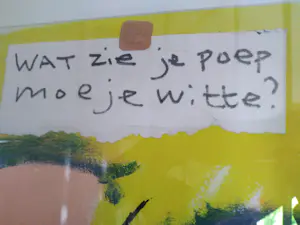 WAT zie je poep
moe je witte?